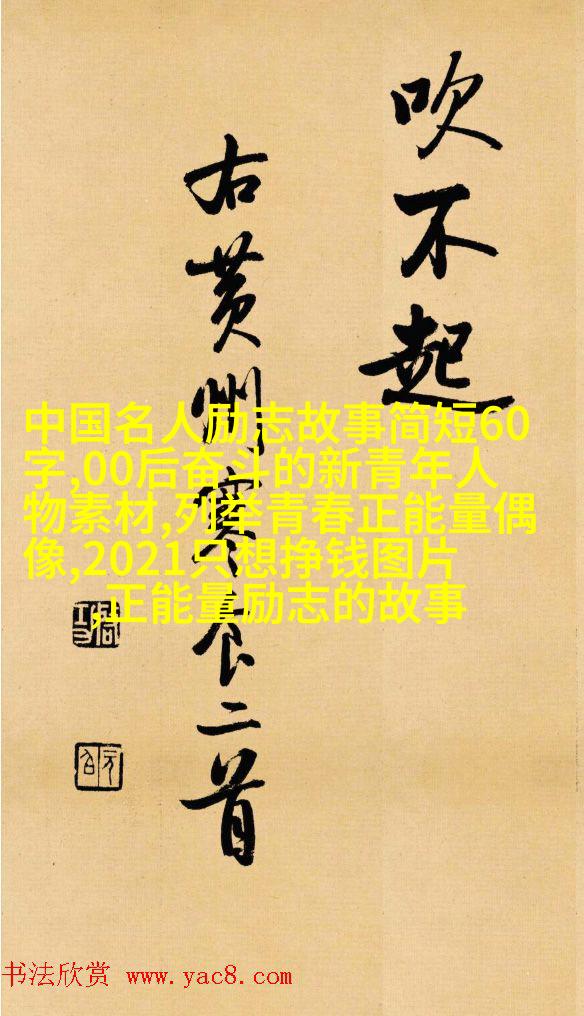 吹不起
右黄州寒食二首
中国名人励志故事简短60
字,00后奋斗的新青年人
物素材,列举青春正能量偶
像,2021只想挣钱图片
,正能量励志的故事
书法欣赏 www.yac8.com